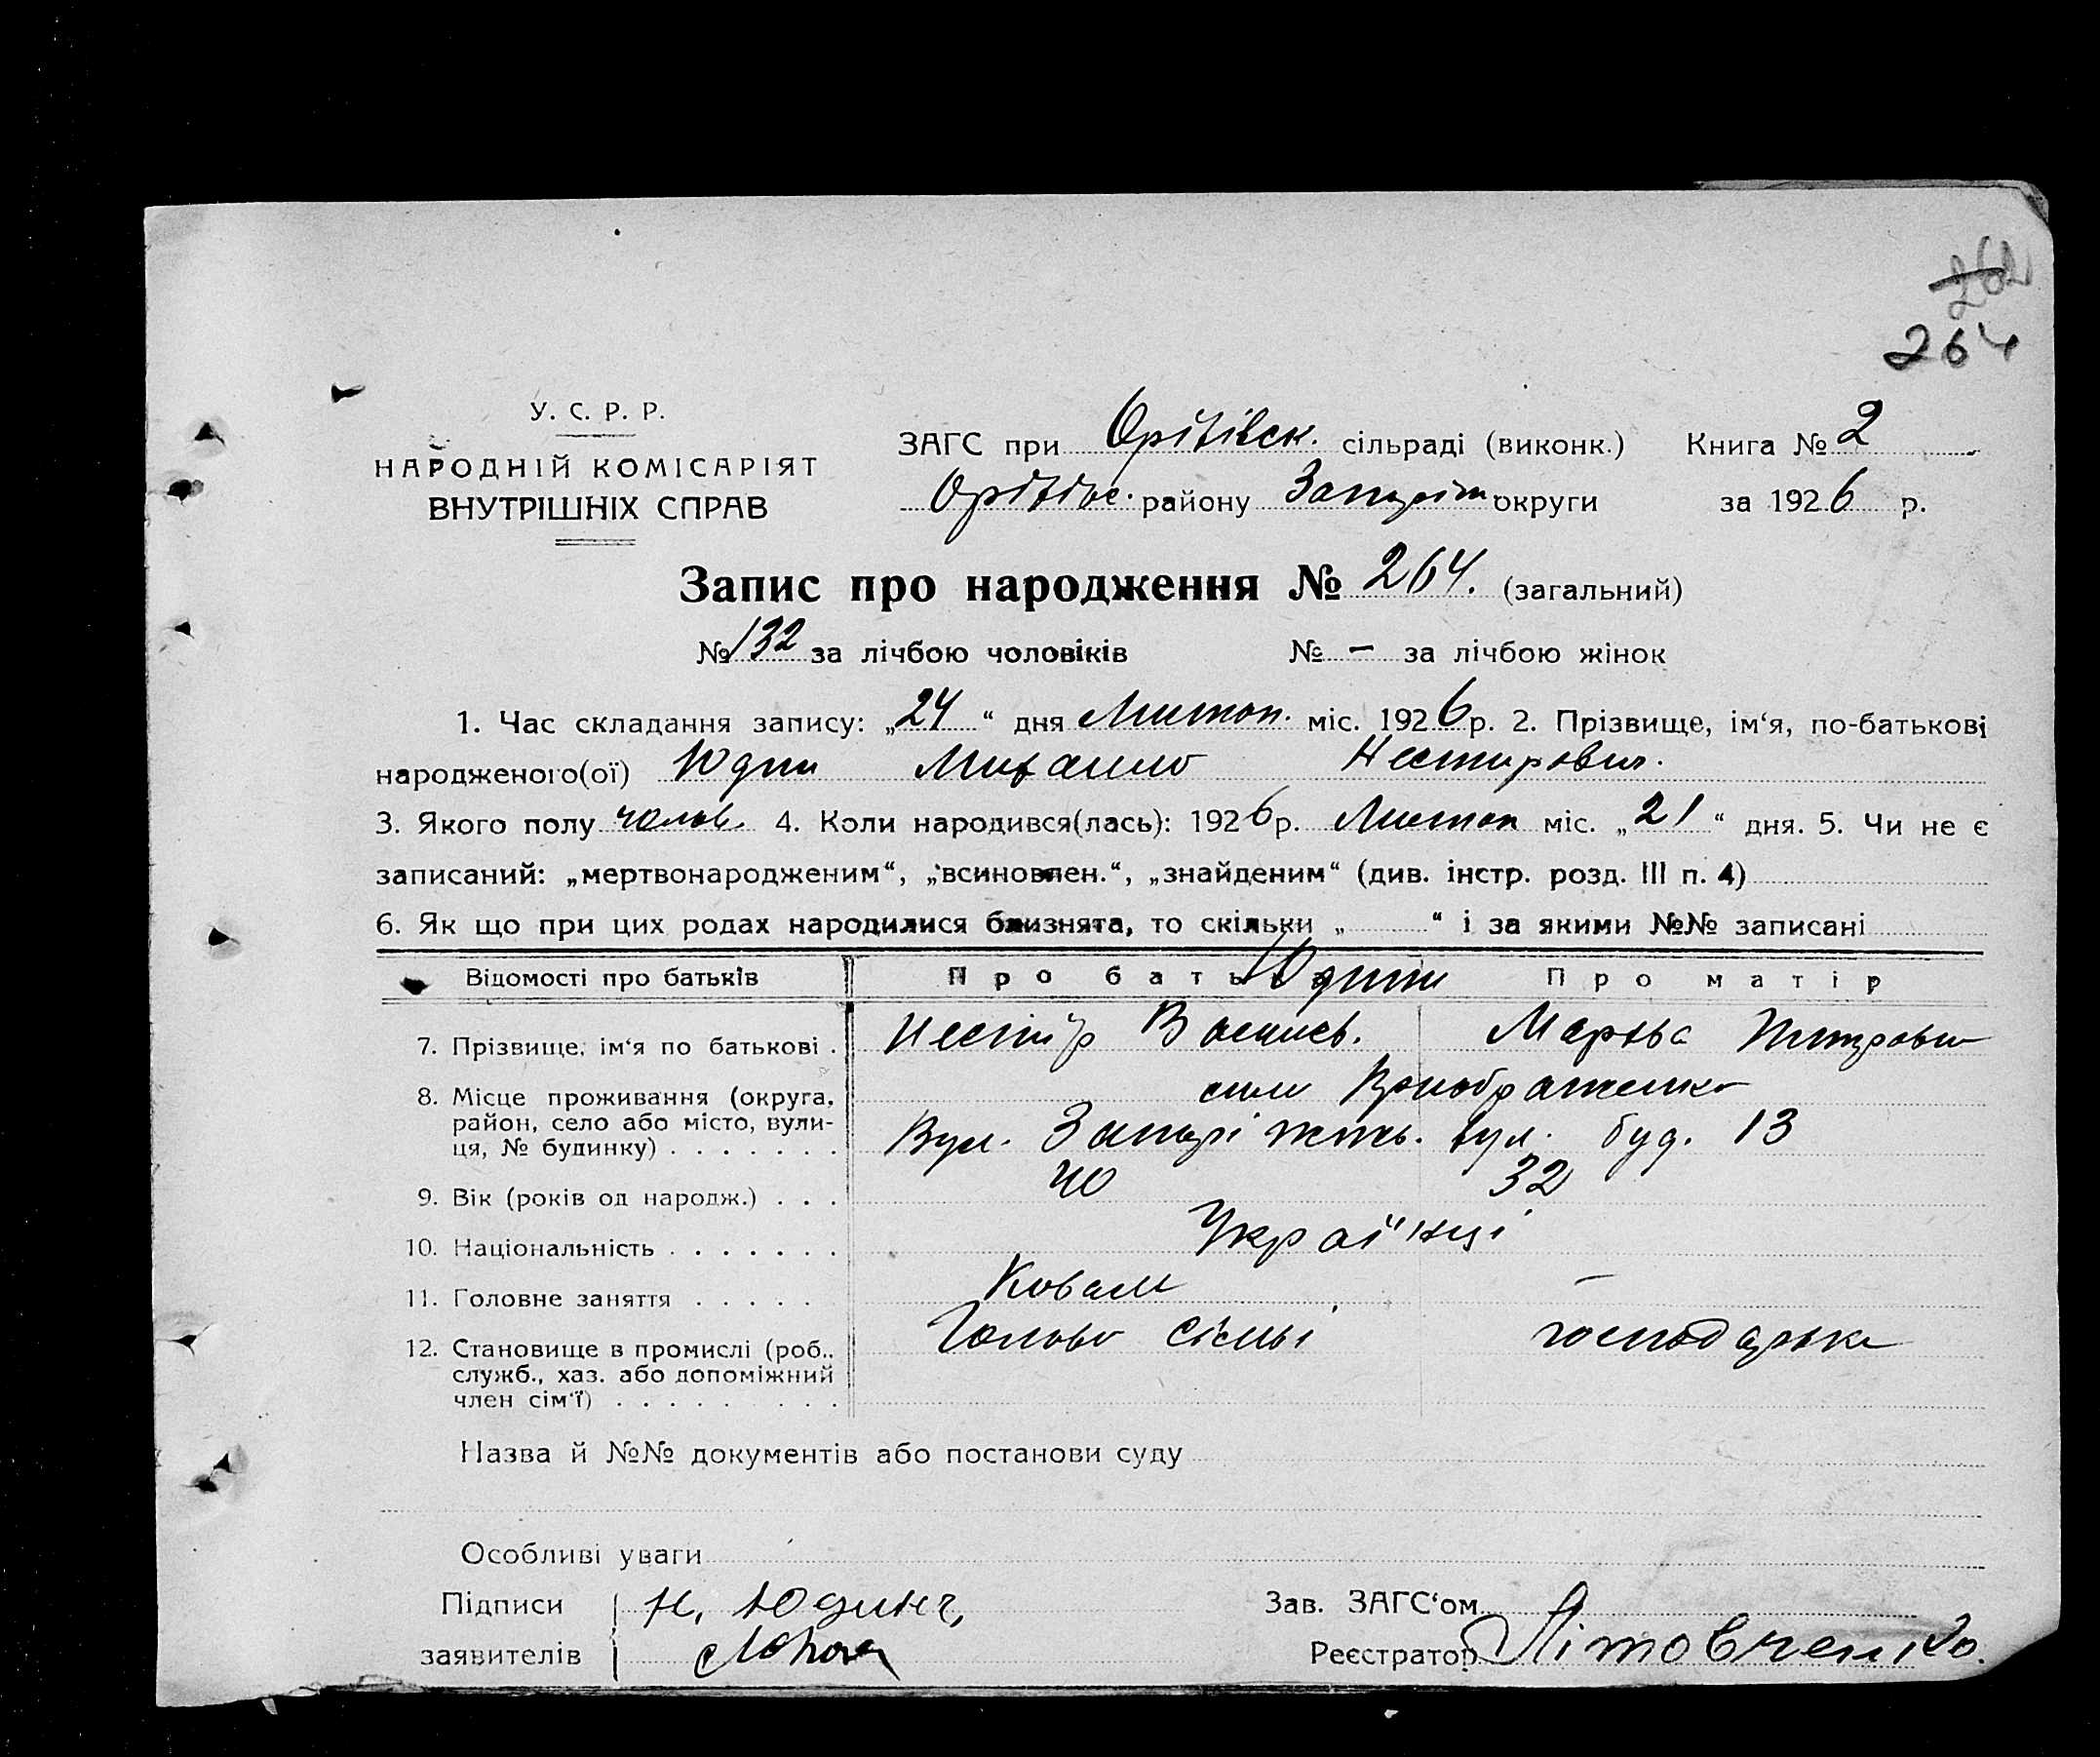 262
264
У. С. Р. Р.
НАРОДНІЙ КОМІСАРІЯТ
ВНУТРІШНІХ СПРАВ
ЗАГС при Оріхівск. сільраді (виконк.) Книга № 2
Оріхівс. району Запоріж округи за 1926 р.
Запис про народження № 264. (загальний)
№ 132 за лічбою чоловіків № – за лічбою жінок
1. Час складання запису: „24“ дня Листоп. міс. 1926 р. 2. Прізвище, ім‘я, по-батькові
народженого(ої) Юдин Михайло Нестирович.
3. Якого полу чолов. 4. Коли народився(лась): 1926 р. Листоп міс. „21“ дня. 5. Чи не є
записаний: „мертвонародженим“, „всиновлен.“, „знайденим“ (див. інстр. розд. III п. 4)
6. Як що при цих родах народилися близнята, то скільки „ “ і за якими №№ записані
Відомості про батьків Про батька Про матір
Юдини
7. Прізвище, ім‘я по батькові . Нестір Василів. Марья
8. Місце проживання (округа, село Преображенка
район, село або місто, вули-
ця, № будинку) . . . . . . . Вул. Запоріжжь. вул. буд. 13
9. Вік (років од народж.) . . . 40 32
10. Національність . . . . . . . Українці
11. Головне заняття . . . . . Коваль –
12. Становище в промислі (роб.. Голова сісмьі господарька
служб., хаз. або допоміжний
член сім‘ї) . . . . . . . . .
Назва й №№ документів або постанови суду
Особливі уваги
Підписи Н. Юдинг,
заявителів
Зав. ЗАГС‘ом
Реєстратор Літовченко.